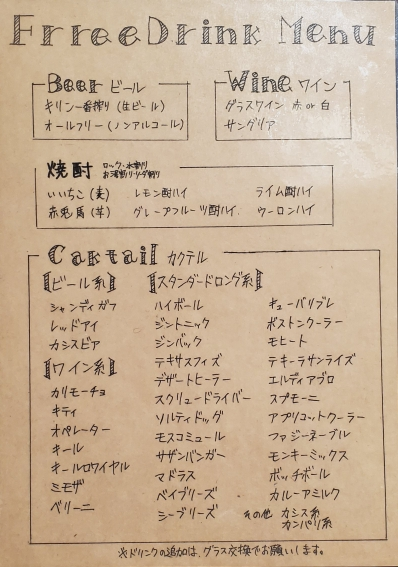 FrreeDrink Menu
Beer ビール
キリン一番搾り(生ビール)
オールフリー(ノンアルコール)
Wine ワイン
グラスワイン 赤 or 白
サングリア
焼酎 ロック・水割り
お湯割り・ソーダ割り
いいちこ(麦) レモン酎ハイ ライム酎ハイ
赤兎馬(芋) グレープフルーツ酎ハイ ウーロンハイ
Caktail カクテル
【ビール系】
シャンディガフ
レッドアイ
カシスビア
【ワイン系】
カリモーチョ
キティ
オペレーター
キール
キールロワイヤル
ミモザ
ベリーニ
【スタンダードロング系】
ハイボール
ジントニック
ジンバック
テキサスフィズ
デザートヒーラー
スクリュードライバー
ソルティドッグ
モスコミュール
サザンバンガー
マドラス
ベイブリーズ
シーブリーズ
キューバリブレ
ボストンクーラー
モヒート
テキーラサンライズ
エルディアブロ
スプモーニ
アプリコットクーラー
ファジーネーブル
モンキーミックス
ボッチボール
カルーアミルク
その他 カシス系
カンパリ系
※ドリンクの追加は、グラス交換でお願いします。